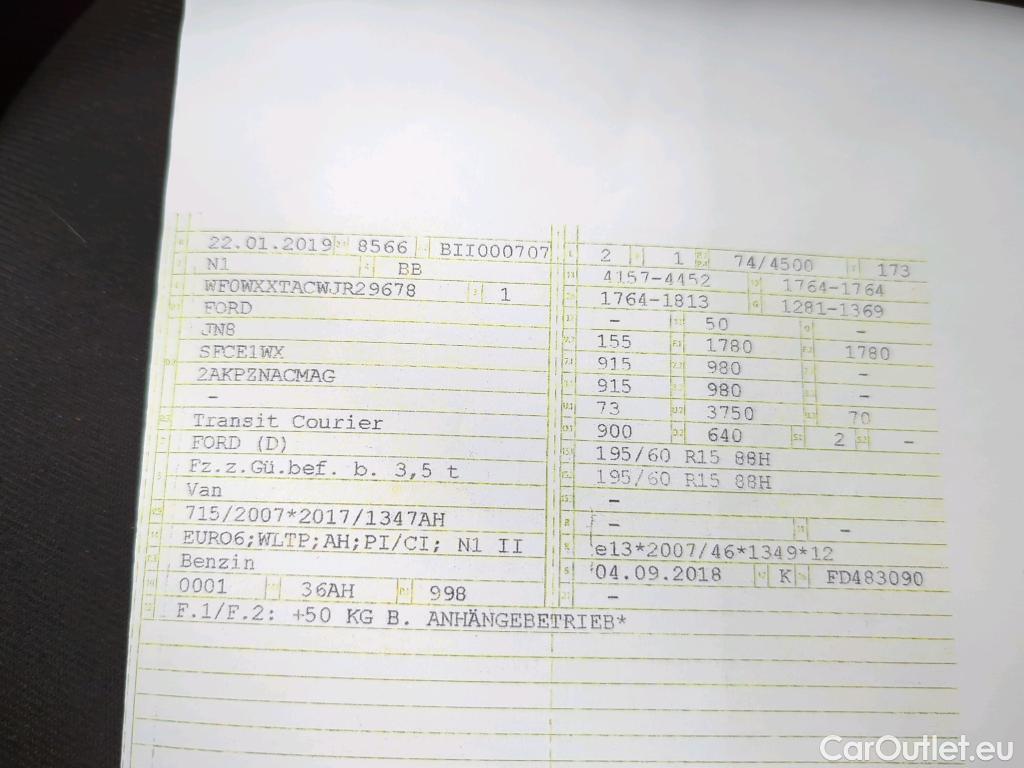 22.01.2019 8566 BII000707
N1 BB
WF0WXXTACWJR29678 1
FORD
JN8
SFCE1WX
2AKPZNACMAG
-
Transit Courier
FORD (D)
Fz.z.Gü.bef. b. 3,5 t
Van
715/2007*2017/1347AH
EURO6;WLTP;AH;PI/CI; N1 II
Benzin
0001 36AH 998
F.1/F.2: +50 KG B. ANHÄNGEBETRIEB*
2 1 74/4500 173
4157-4452 1764-1764
1764-1813 1281-1369
- 50 -
155 1780 1780
915 980 -
915 980 -
73 3750 70
900 640 2 -
195/60 R15 88H
195/60 R15 88H
-
- -
e13*2007/46*1349*12
04.09.2018 K FD483090
-
CarOutlet.eu